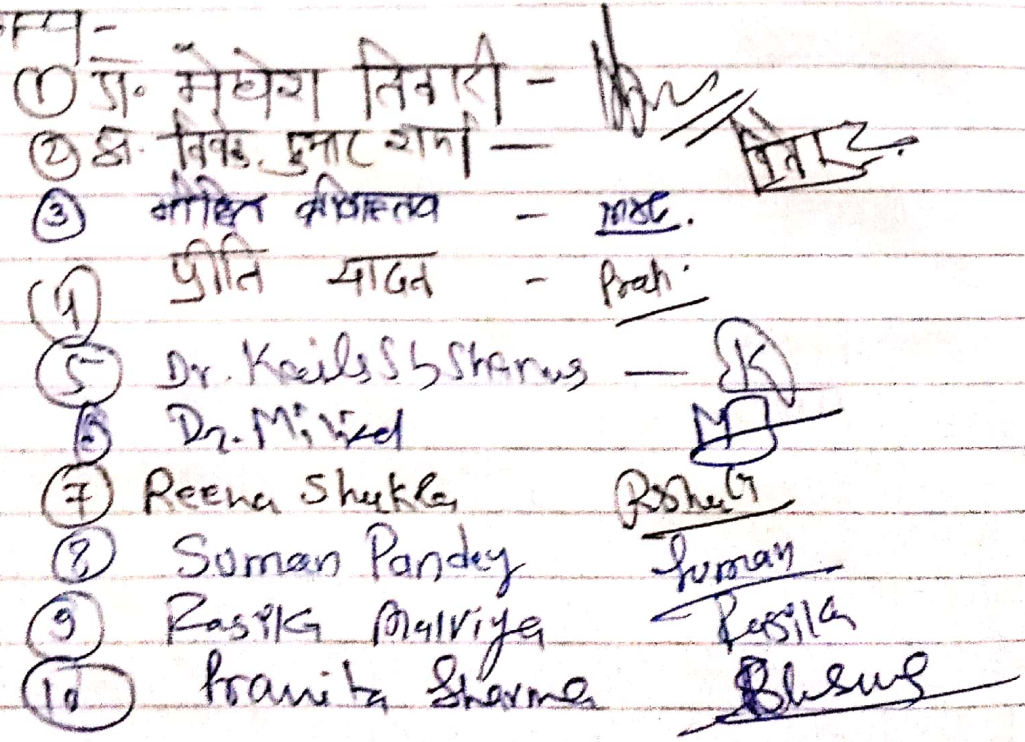 ① प्रो. मेघेश तिवारी -
② डॉ. विवेक कुमार शर्मा —
③ मोहित श्रीवास्तव -
④ प्रीति यादव - Preeti
⑤ Dr. Kailash Sharma — K
⑥ Dr. Milind M
⑦ Reena Shukla
⑧ Suman Pandey Suman
⑨ Rasika Malviya Rasika
⑩ Pranita Sharma